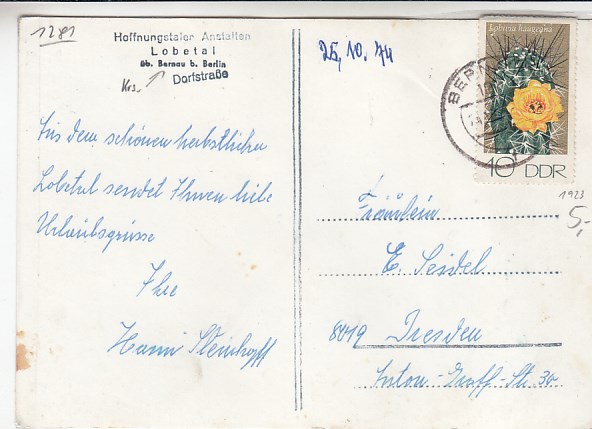 1281
Hoffnungstaler Anstalten
Lobetal
üb. Bernau b. Berlin
Dorfstraße
Krs.
Aus dem schönen herbstlichen
Lobetal sendet Ihnen liebe
Urlaubsgrüsse
Ihre
Hanni Steinhoff
25.10.74
Lobivia haageana
BER
10 DDR
1923
5,-
Fräulein
E. Seidel
8019 Dresden
Anton-Graff-Str. 30